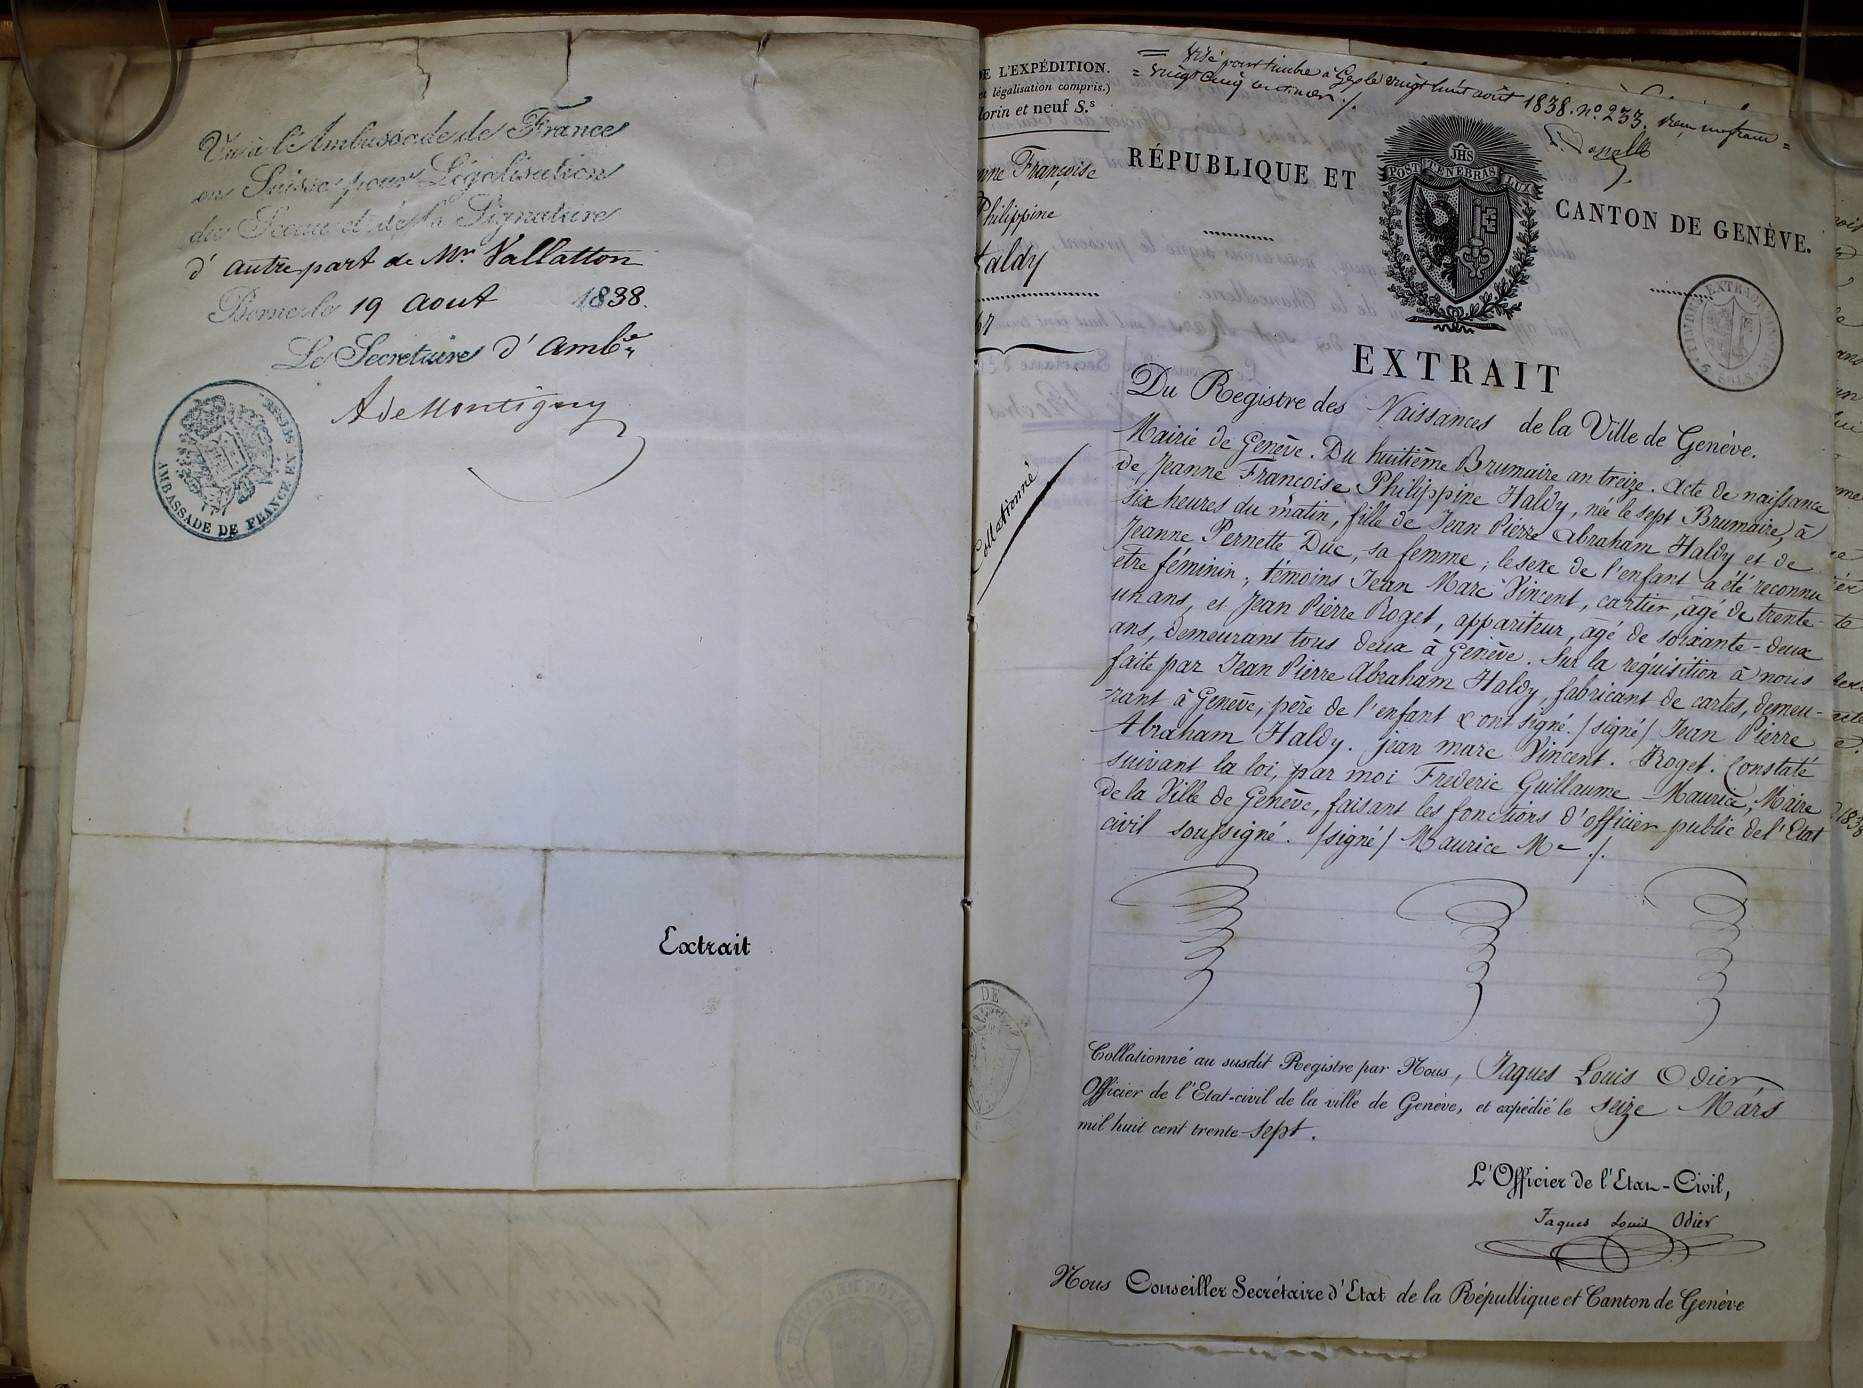 Vu à l'Ambassade de France
en Suisse pour Légalisation
du Sceau et de la Signature
d'autre part de Mr. Vallatton
Berne le 19 aout 1838.
Le Secrétaire d'Ambe
A de Montigny
AMBASSADE DE FRANCE EN SUISSE
Extrait
DE L'EXPÉDITION.
et légalisation compris.)
florin et neuf S.s
nne Françoise
Philippine
Haldy
Collationné
= Visé pour timbre à Gex le vingt huit août 1838. no. 233. reçu un franc =
= vingt cinq centimes ./.
RÉPUBLIQUE ET
JHS
POST TENEBRAS LUX
CANTON DE GENÈVE.
EXTRAIT
Du Registre des Naissances de la Ville de Genève.
Mairie de Genève. Du huitième Brumaire an treize. Acte de naissance
de Jeanne Françoise Philippine Haldy, née le sept Brumaire, à
six heures du matin, fille de Jean Pierre Abraham Haldy et de
Jeanne Pernette Duc, sa femme; le sexe de l'enfant a été reconnu
etre féminin; témoins Jean Marc Vincent, cartier, âgé de trente-
un ans, et Jean Pierre Roget, appariteur, âgé de soixante-deux
ans, demeurant tous deux à Genève. Sur la réquisition à nous
faite par Jean Pierre Abraham Haldy, fabricant de cartes, demeu-
-rant à Genève, père de l'enfant & ont signé. /signé/ Jean Pierre
Abraham Haldy. jean marc Vincent. Roget. Constaté
suivant la loi, par moi Frederic Guillaume Maurice, Maire
de la Ville de Genève, faisant les fonctions d'officier public de l'Etat
civil soussigné. /signé/ Maurice Me ./.
DE
Collationné au susdit Registre par Nous, Jaques Louis Odier,
Officier de l'Etat-civil de la ville de Genève, et expédié le seize Mars
mil huit cent trente-sept.
L'Officier de l'Etat-Civil,
Jaques Louis Odier
Nous Conseiller Secrétaire d'Etat de la République et Canton de Genève